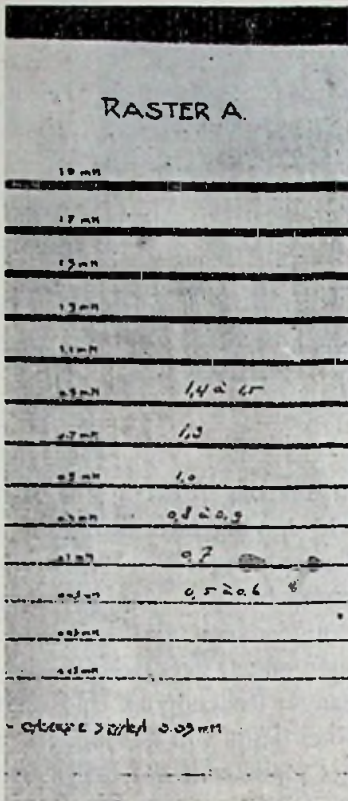 RASTER A.
1.9 mM
1.7 mM
1.5 mM
1.3 mM
1.1 mM
0.9 mM 1,4 à 1,5
0.7 mM 1,3
0.5 mM 1,0
0.3 mM 0,8 à 0,9
0.1 mM 0,7
0,5 à 0,6
0.03 mM